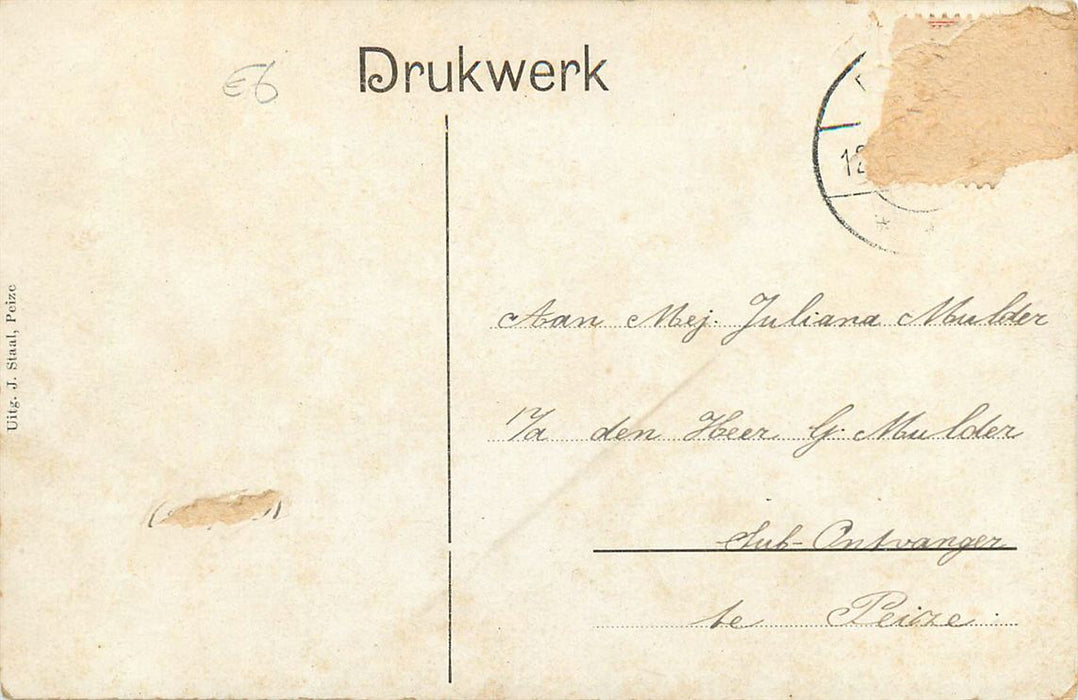 Drukwerk
E6
Aan Mej. Juliana Mulder
P/a den Heer G. Mulder
Sub-Ontvanger
te Peize
Uitg. J. Staal, Peize